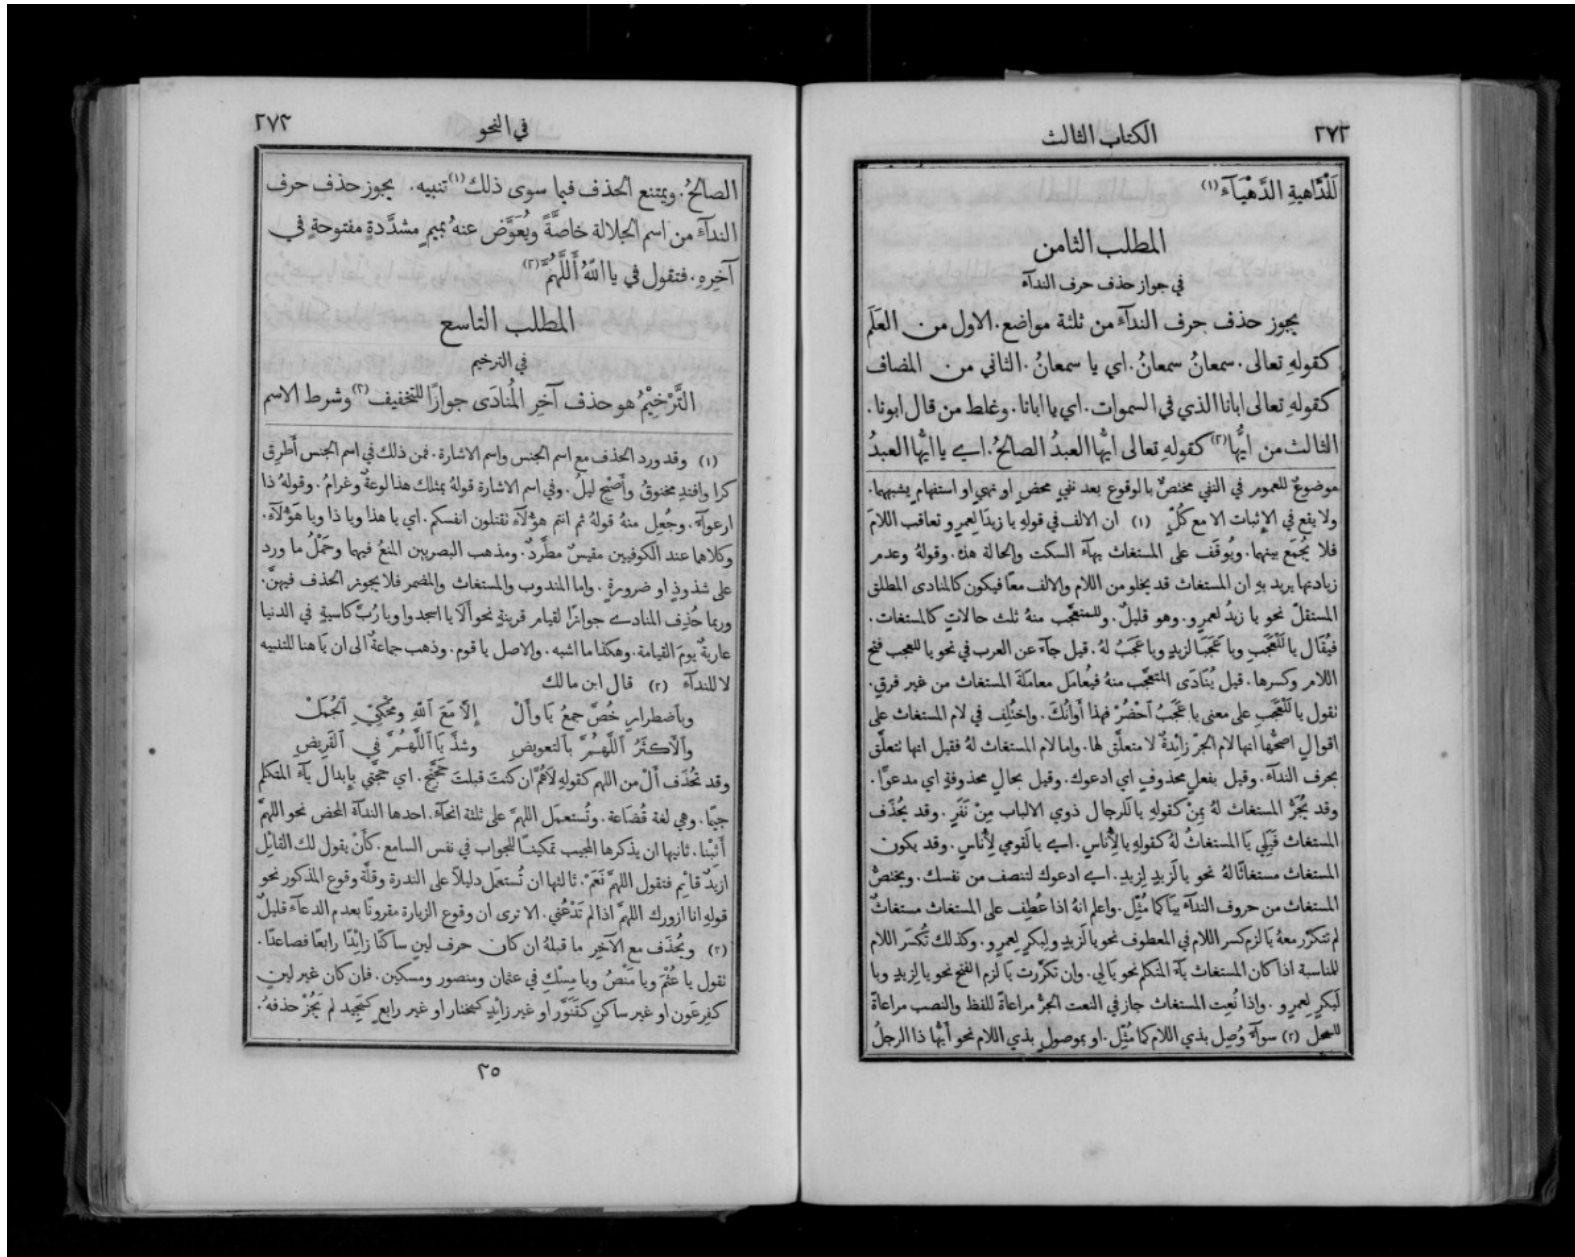 ٢٧٢ الكتاب الثالث
لَلْدَّاهيةِ الدَّهْيَآء (١)
المطلب الثامن
في جواز حذف حرف الندآء
يجوز حذف حرف الندآء من ثلثة مواضع. الاول من العَلَم
كقولهِ تعالى. سمعانُ سمعانُ. اي يا سمعانُ. الثاني من المضاف
كقولهِ تعالى ابانا الذي في السموات. اي يا ابانا. وغلط من قال ابونا.
الثالث من ايُّها (٢) كقولهِ تعالى ايُّها العبدُ الصالحُ. اي يا ايُّها العبدُ
موضوعٌ للعموم في النفي مختصٌّ بالوقوع بعد نفيٍ محضٍ او نهيٍ او استفهامٍ يشبههما.
ولا يقع في الإثبات الا مع كُلّ (١) ان الالف في قولهِ يا زيدَا لِعمرٍو تعاقب اللامَ
فلا يُجمَع بينهما. ويُوقَف على المستغاث بهآء السكت والحالة هذه. وقولهُ وعدم
زيادتها يريد بهِ ان المستغاث قد يخلو من اللام والالف معًا فيكون كالمنادى المطلق
المستقلّ نحو يا زيدُ لعمرٍو. وهو قليلٌ. وللمتعجَّب منهُ ثلث حالاتٍ كالمستغاث.
فيُقَال يا لَلْعَجَبِ ويا عَجَبَا لزيدٍ ويا عَجَبُ لهُ. قيل جآءَ عن العرب في نحو يا للعجب فتح
اللام وكسرها. قيل يُنَادَى المتعجَّب منهُ فيُعامَل معاملَة المستغاث من غير فرقٍ.
نقول يا لَلْعَجَبِ على معنى يا عَجَبُ اَحْضُرْ فهذا أَوانُكَ. واختُلِف في لام المستغاث على
اقوالٍ اصحُّها انها لام الجرّ زائدةٌ لا متعلَّق لها. واما لام المستغاث لهُ فقيل انها تتعلَّق
بحرف الندآء. وقيل بفعلٍ محذوفٍ اي ادعوك. وقيل بحالٍ محذوفةٍ اي مدعوًّا.
وقد يُجَرُّ المستغاث لهُ بِمِنْ كقولهِ يا للرجال ذوي الالباب مِنْ نَفَرٍ. وقد يُحذَف
المستغاث فيَلِي يَا المستغاثُ لهُ كقولهِ يا لِأُناسٍ. اي يا لَقومي لِأُناسٍ. وقد يكون
المستغاث مستغاثًا لهُ نحو يا لَزيدٍ لِزيدٍ. اي ادعوك لتنصف من نفسك. ويختصّ
المستغاث من حروف الندآء بيَا كما مُثِّل. واعلم انهُ اذا عُطِف على المستغاث مستغاثٌ
لم تتكرّر معهُ يَا لزم كسر اللام في المعطوف نحو يا لَزيدٍ ولِبكرٍ لِعمرٍو. وكذلك تُكسَر اللام
للمناسبة اذا كان المستغاث يآء المتكلم نحو يا لِي. وان تكرَّرت يَا لزم الفتح نحو يا لزيدٍ ويا
لَبكرٍ لِعمرٍو. واذا نُعِت المستغاث جاز في النعت الجرُّ مراعاةً للفظ والنصب مراعاةً
للمحل (٢) سوآءٌ وُصِل بذي اللام كما مُثِّل. او بموصولٍ بذي اللام نحو أَيُّها ذا الرجلُ
في النحو ٢٧٣
الصالحُ. ويمتنع الحذف فيما سوى ذلك (١) تنبيه. يجوز حذف حرف
الندآء من اسم الجلالة خاصَّةً ويُعَوَّض عنهُ بميمٍ مشدَّدةٍ مفتوحةٍ في
آخرِهِ. فتقول في يا اللهُ أَللَّهُمَّ (٢)
المطلب التاسع
في الترخيم
التَّرْخِيْمُ هو حذف آخر المُنَادَى جوازًا للتخفيف (٣) وشرط الاسم
(١) وقد ورد الحذف مع اسم الجنس واسم الاشارة. فمن ذلك في اسم الجنس أَطرِق
كرا وافتدِ مخنوقُ وأَصْبِح ليلُ. وفي اسم الاشارة قولهُ بمثلك هذا لوعةٌ وغرامُ. وقولهُ ذا
ارعوآءً. وجُعِل منهُ قولهُ ثم انتم هؤلآءِ تقتلون انفسكم. اي يا هذا ويا ذا ويا هَؤلآءِ.
وكلاهما عند الكوفيين مقيسٌ مطَّردٌ. ومذهب البصريين المنعُ فيهما وحَمْلُ ما ورد
على شذوذٍ او ضرورةٍ. واما المندوب والمستغاث والمضمر فلا يجوز الحذف فيهنَّ.
وربما حُذِف المنادى جوازًا لقيام قرينةٍ نحو أَلَا يا اسجدوا ويا رُبَّ كاسيةٍ في الدنيا
عاريةٌ يومَ القيامة. وهكذا ما اشبه. والاصل يا قوم. وذهب جماعةٌ الى ان يَا هنا للتنبيه
لا للندآء (٢) قال ابن مالك
وبِاضطرارٍ خُصَّ جمعُ يَا وأَلْ إِلَّا مَعَ اللهِ ومَحْكِيِّ الجُمَلْ
والأكثَرُ اللَّهُمَّ بالتعويضِ وشذَّ يَا اللَّهُمَّ في القَرِيضِ
وقد تُحذَف أَلْ من اللهم كقولهِ لَاهُمَّ ان كنتَ قبلتَ حَجَّتِجْ. اي حجَّتي بإِبدال يآء المتكلم
جيمًا. وهي لغة قُضَاعة. وتُستعمَل اللهمَّ على ثلثة انحآء. احدها الندآءُ المحض نحو اللهمَّ
أَثِبْنا. ثانيها ان يذكرها المجيب تمكينًا للجواب في نفس السامع. كأَنْ يقول لك القائل
ازيدٌ قائِم فتقول اللهمَّ نَعَمْ. ثالثها ان تُستعمَل دليلًا على الندرة وقلَّة وقوع المذكور نحو
قولهِ انا ازورك اللهمَّ اذا لم تَدْعُني. الا ترى ان وقوع الزيارة مقرونًا بعدم الدعآءِ قليلٌ
(٣) ويُحذَف مع الآخِر ما قبلهُ ان كان حرف لينٍ ساكنًا زائدًا رابعًا فصاعدًا.
نقول يا عُثْمَ ويا مَنْصُ ويا مِسْكِ في عثمان ومنصور ومسكين. فان كان غير لينٍ
كفِرعَون او غير ساكنٍ كقَنَوَّر او غير زائدٍ كمختار او غير رابعٍ كمَجِيد لم يَجُزْ حذفهُ.
٣٥